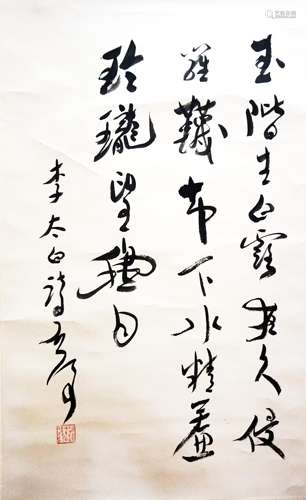 玉階生白露夜久侵
羅襪却下水精簾
玲瓏望秋月
李太白詩